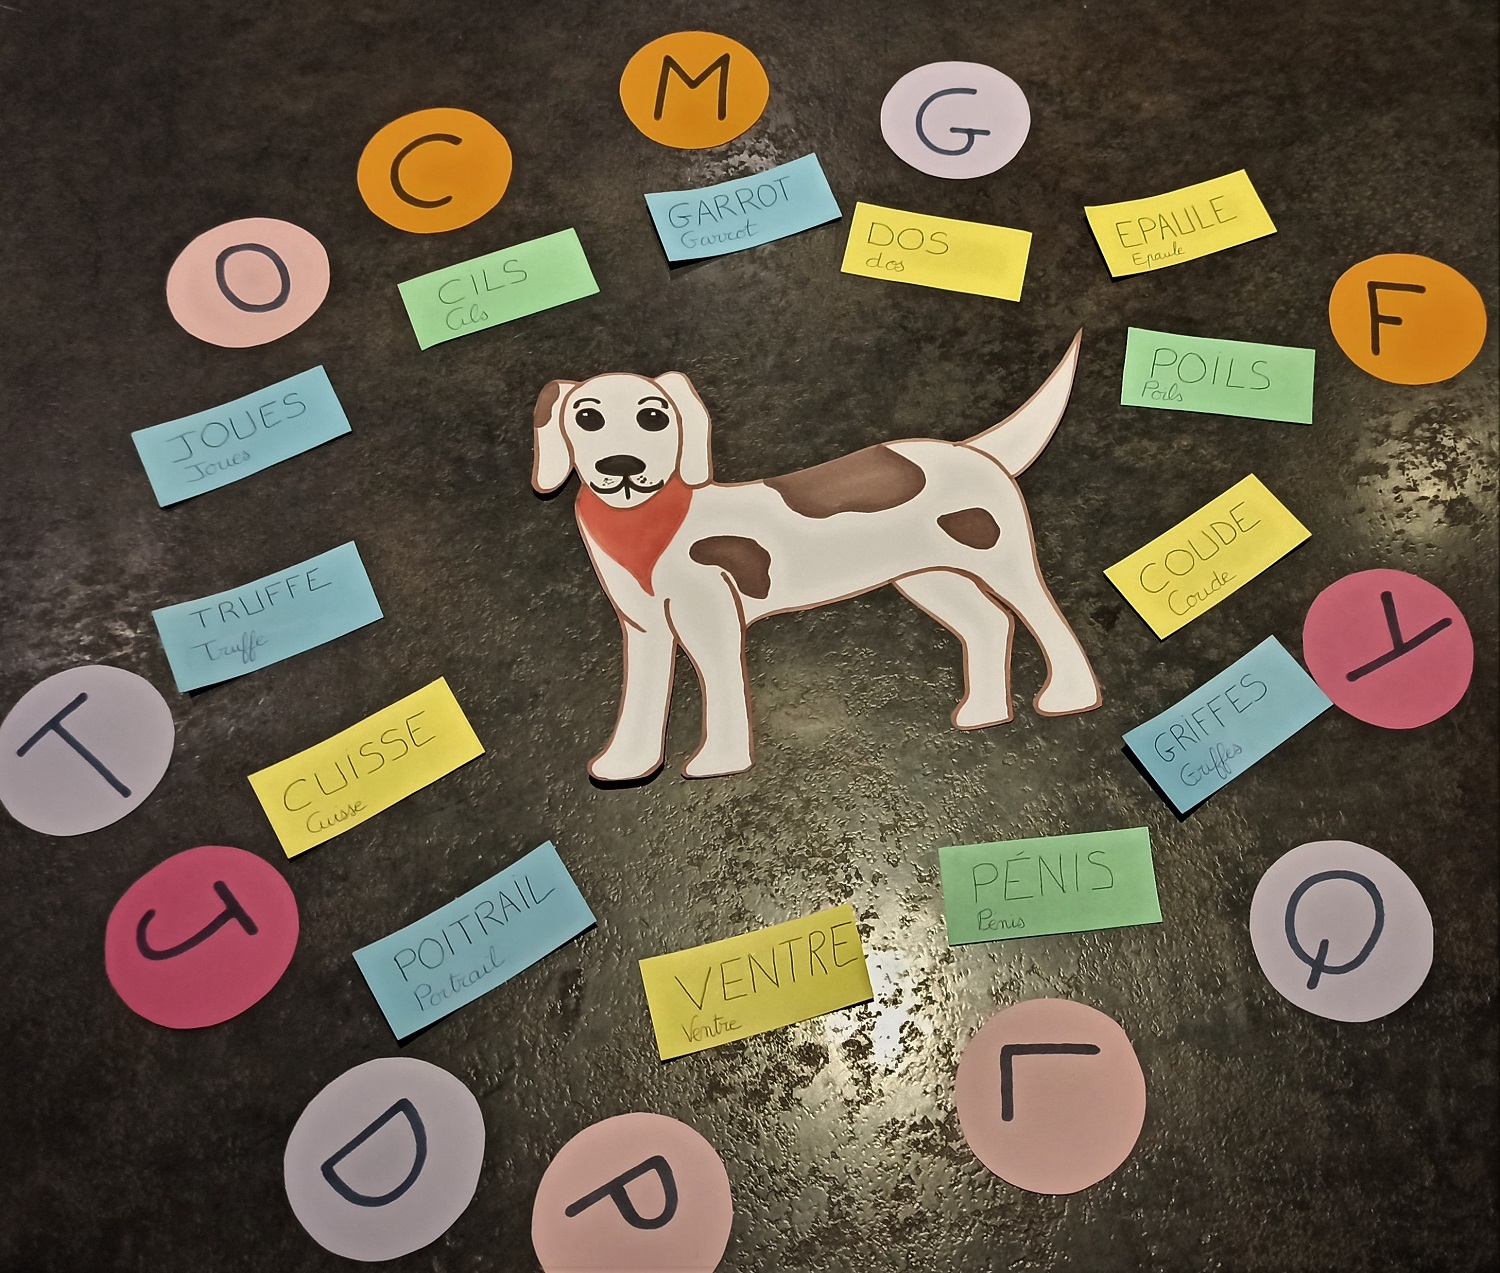 M
G
C
O
GARROT
Garrot
DOS
dos
EPAULE
Epaule
CILS
Cils
F
POILS
Poils
JOUES
Joues
COUDE
Coude
TRUFFE
Truffe
GRIFFES
Griffes
T
CUISSE
Cuisse
J
POITRAIL
Poitrail
PÉNIS
Penis
Q
VENTRE
Ventre
L
D
P